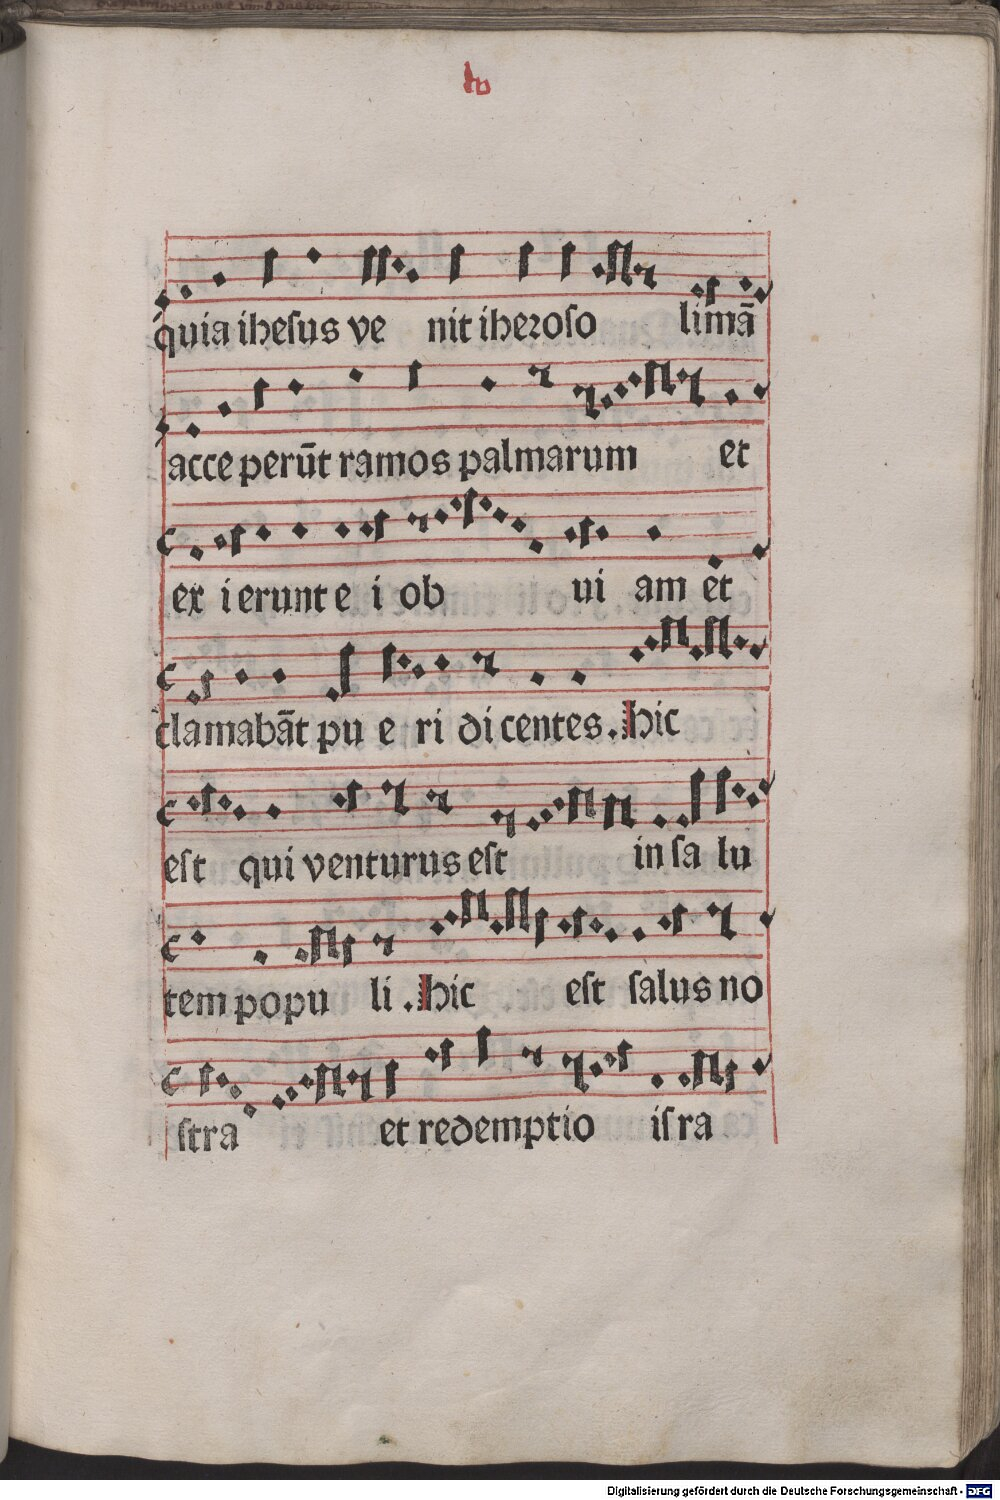 quia iheſus ve nit iheꝛoſo limā
acce perūt ramos palmarum et
ex i erunt e i ob ui am et
clamabāt pu e ri di centes. hic
eſt qui venturus eſt in ſa lu
tem popu li. hic eſt ſalus no
ſtra et redemptio iſ ra
Digitalisierung gefördert durch die Deutsche Forschungsgemeinschaft - DFG